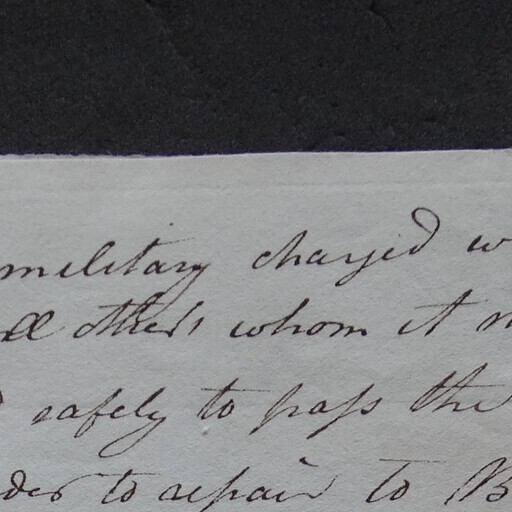 military charged w
all others whom it m
safely to pass the
der to repair to B